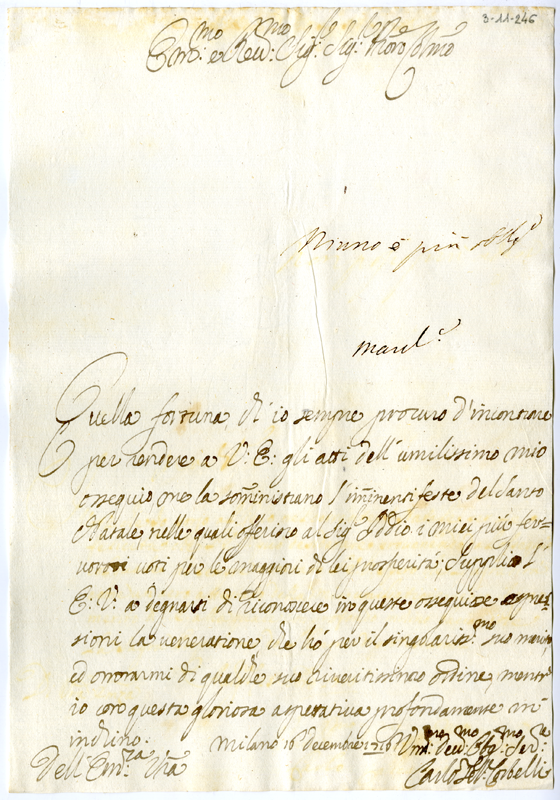 3-11-246
Em:mo e Rev:mo Sig:r Sig:r Pron Colmo
Niuno è più
Quella fortuna, ch'io sempre procuro d'incontrare
per rendere a V: E: gli atti dell'umilissimo mio
ossequio, me la somministrano l'imminenti feste del Santo
Natale nelle quali offerisco al Sig:r Iddio i miei più fer-
vorosi voti per le maggiori di lei prosperità; Supplico l'
E: V: a degnarsi di riconoscere in queste ossequiose espres-
sioni la venerazione, che hò per il singolariss:mo suo merito,
ed onorarmi di qualche suo riveritissimo ordine, mentre
io con questa gloriosa aspettativa profondamente m'
inchino. Milano 16 Decembre
Dell'Em:za V'ra Um:mo Dev:mo Obb:mo Ser:e
Carlo Corbelli